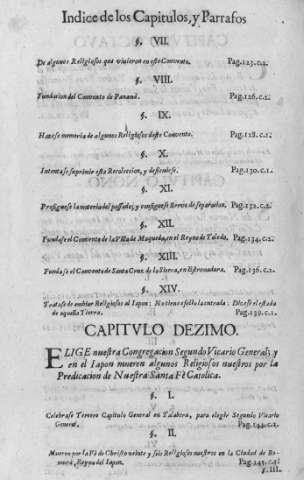 Indice de los Capitulos, y Parrafos
§. VII.
De algunos Religiosos que vivieron en este Convento. Pag.123.c.2.
§. VIII.
Fundacion del Convento de Panamà. Pag.126.c.2.
§. IX.
Hazese memoria de algunos Religiosos deste Convento. Pag.128.c.1.
§. X.
Intentase suprimir esta Recoleccion, y defiendese. Pag.130.c.1.
§. XI.
Prosiguese la materia del passado, y consiguese Breve de separados. Pag.132.c.2.
§. XII.
Fundase el Convento de la Villa de Maqueda, en el Reyno de Toledo. Pag.134.c.2.
§. XIII.
Fundase el Convento de Santa Cruz de la Sierra, en Estremadura. Pag.136.c.2.
§. XIV.
Tratase de embiar Religiosos al Iapon: No tiene efecto la entrada: Dizese el estado
de aquella Tierra. Pag.139.c.1.
CAPITVLO DEZIMO.
ELIGE nuestra Congregacion Segundo Vicario General; y
en el Iapon mueren algunos Religiosos nuestros por la
Predicacion de Nuestra Santa Fè Catolica.
§. I.
Celebrase Tercero Capitulo General en Talabera, para elegir Segundo Vicario
General. Pag.144.c.1.
§. II.
Mueren por la Fè de Christo veinte y seis Religiosos nuestros en la Ciudad de
Reyno del Iapon. Pag.145.c.2.
§. III.